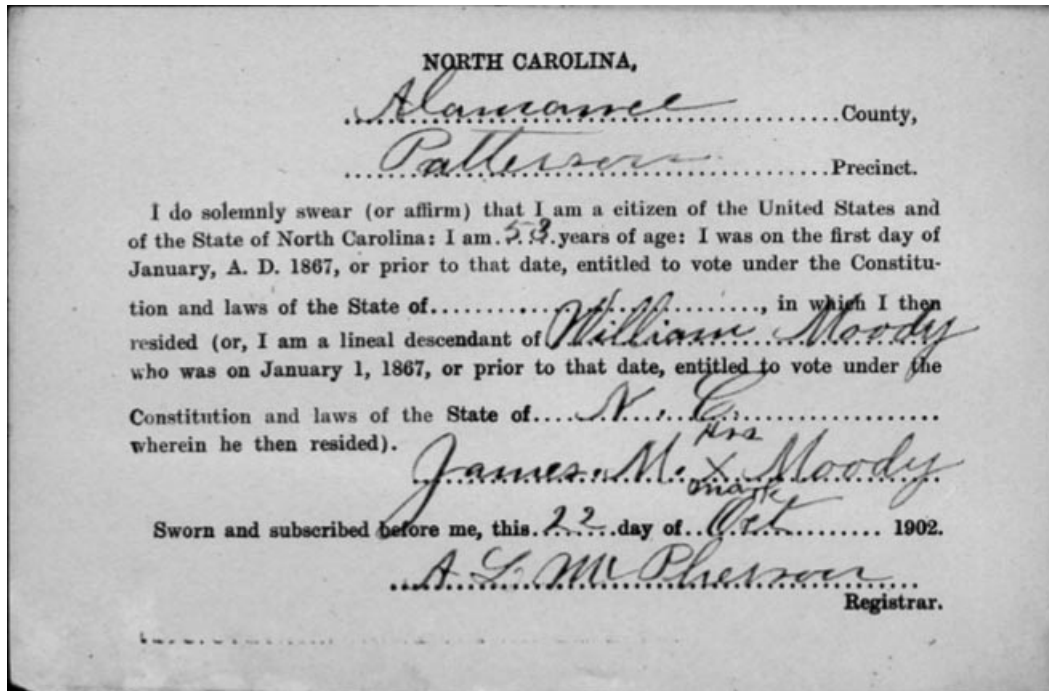 NORTH CAROLINA,
Alamance County,
Patterson Precinct.
I do solemnly swear (or affirm) that I am a citizen of the United States and
of the State of North Carolina: I am 53 years of age: I was on the first day of
January, A. D. 1867, or prior to that date, entitled to vote under the Constitu-
tion and laws of the State of ...................., in which I then
resided (or, I am a lineal descendant of William Moody
who was on January 1, 1867, or prior to that date, entitled to vote under the
Constitution and laws of the State of N. C.
wherein he then resided).
his
James M. X Moody
mark
Sworn and subscribed before me, this 22 day of Oct 1902.
A L McPherson
Registrar.